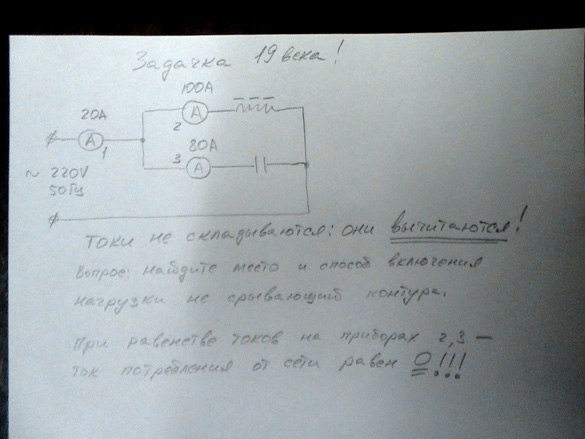 Задачка 19 века!
100A
20A
A
A
2
1
3
80A
A
~ 220V
50Гц
токи не складываются: они вычитаются!
Вопрос: найдите место и способ включения
нагрузки не срывающий контура.
При равенстве токов на приборах 2,3 —
ток потребления от сети равен 0!!!